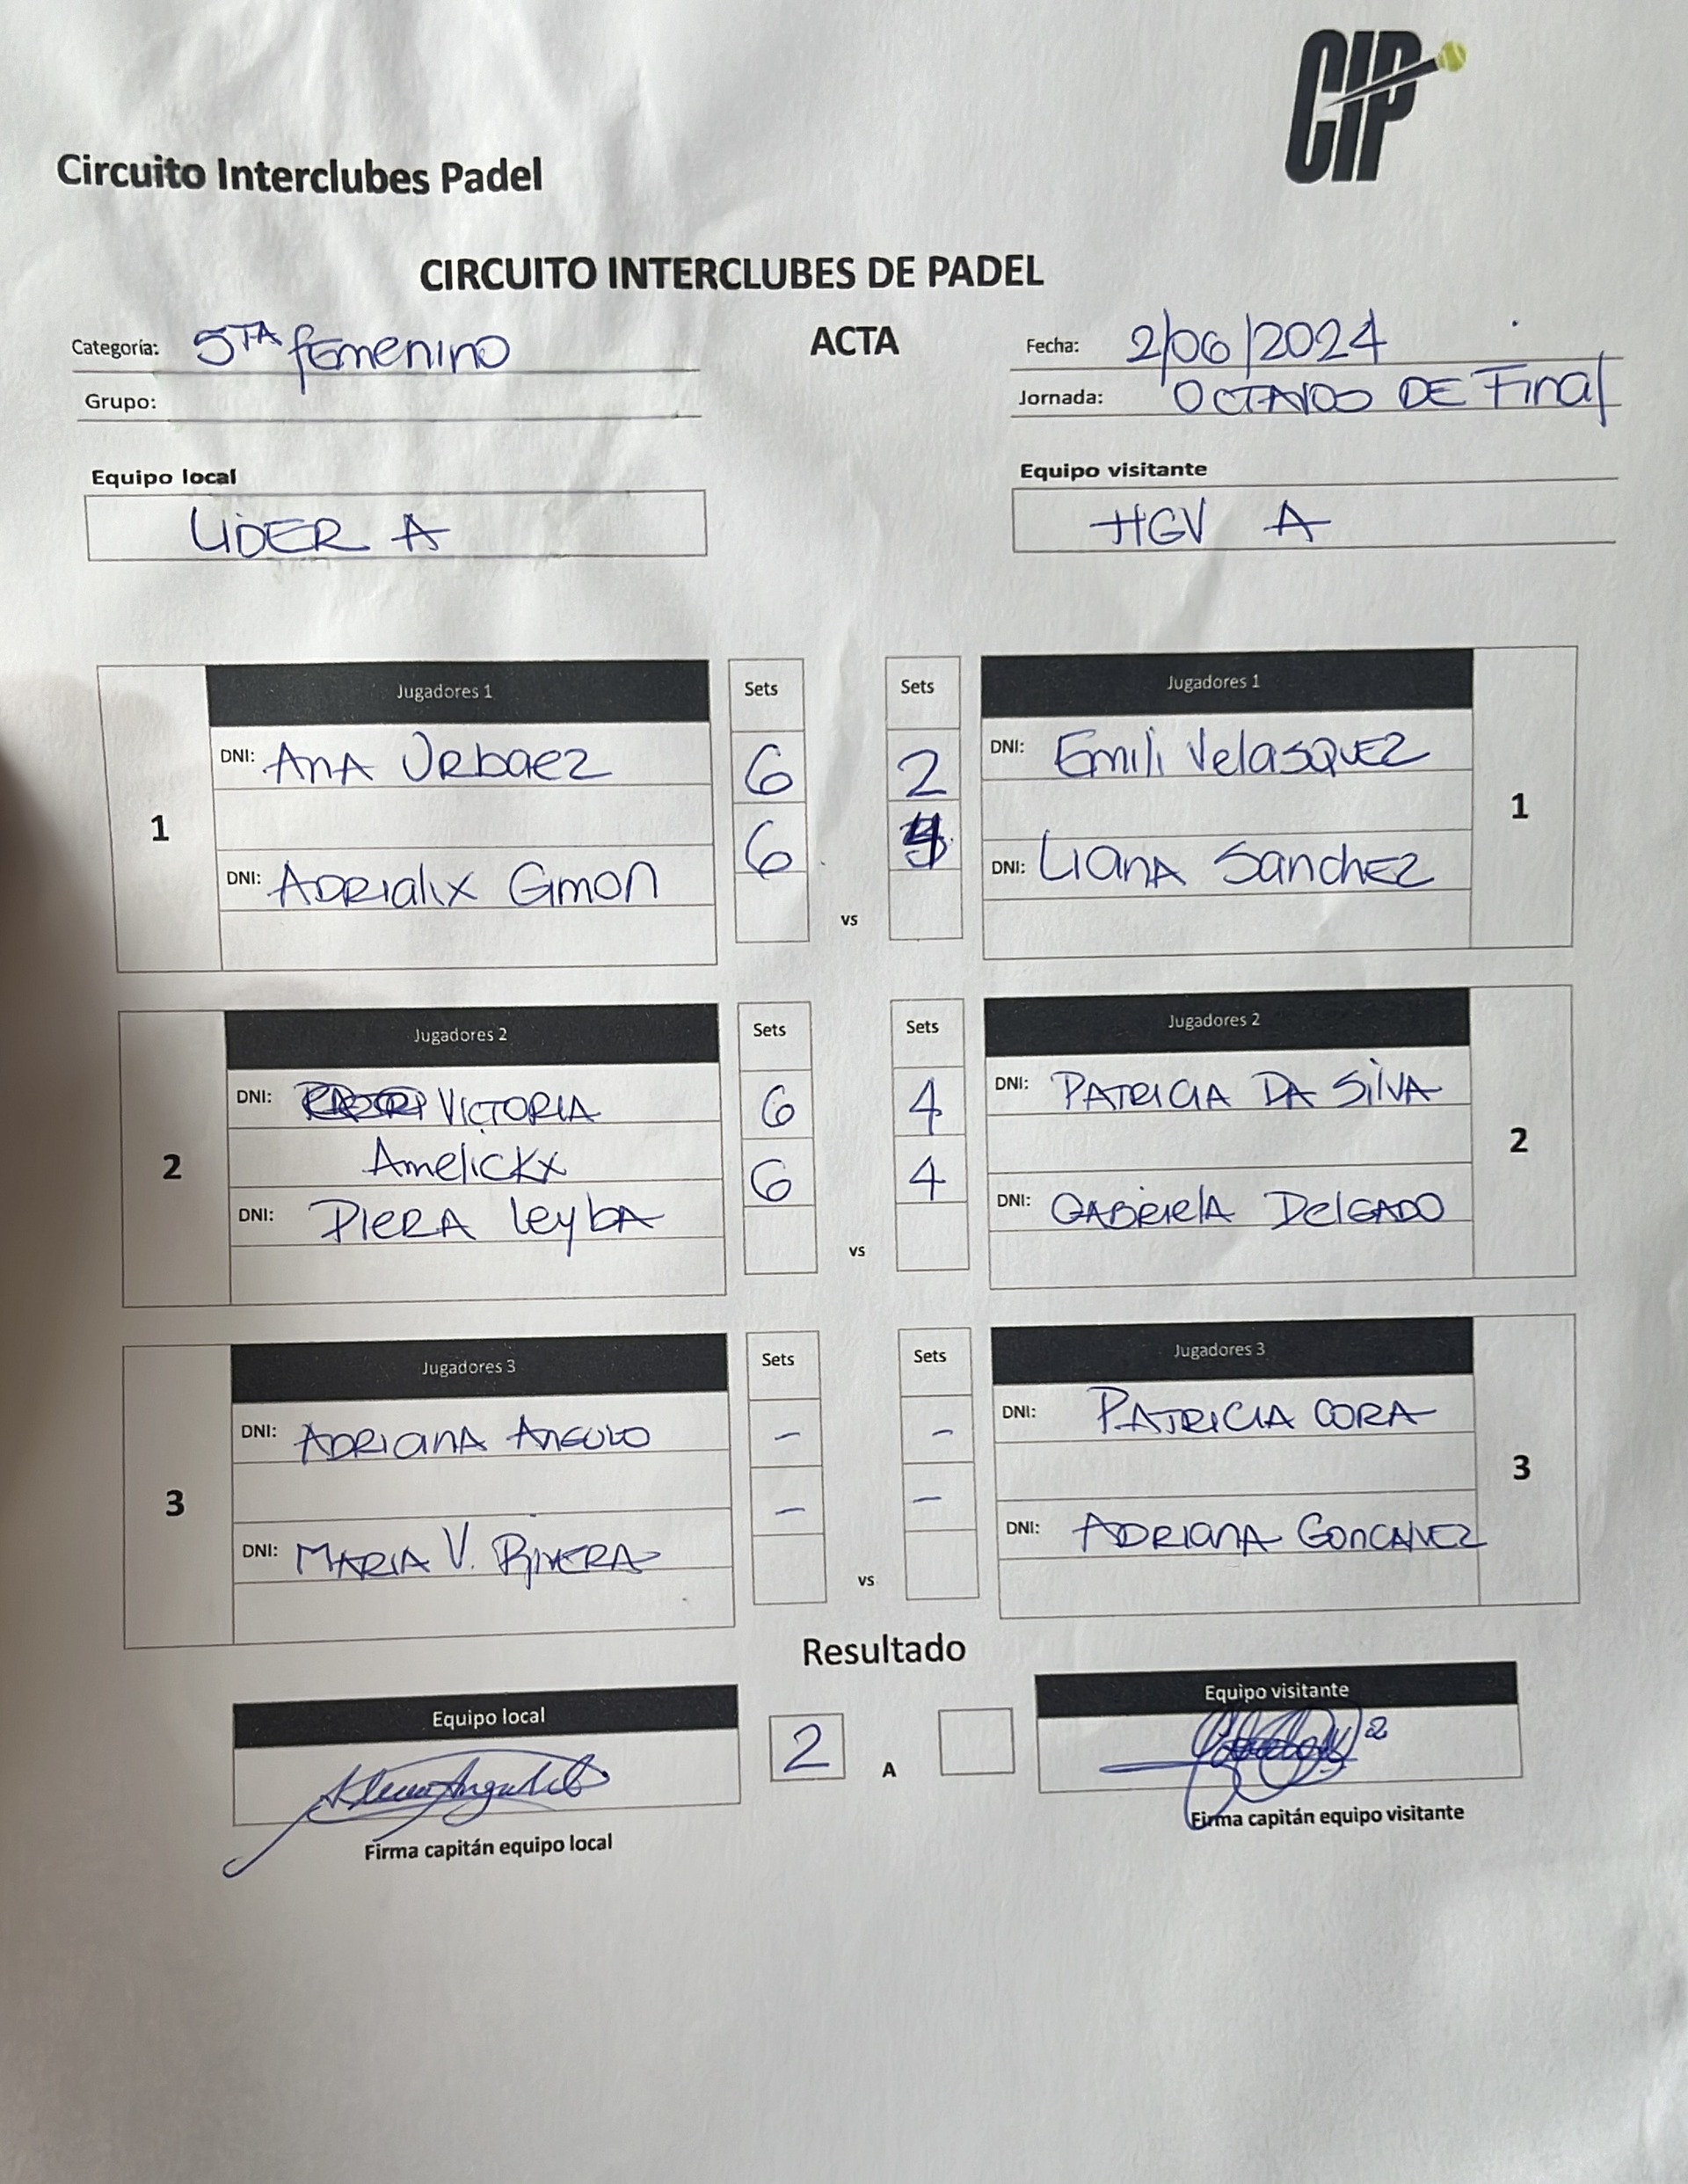 CIP
Circuito Interclubes Padel
CIRCUITO INTERCLUBES DE PADEL
Categoría: 5TA femenino
ACTA
Fecha: 2/06/2024
Grupo:
Jornada: OCTAVOS DE Final
Equipo local
Equipo visitante
LIDER A
HGV A
1
Jugadores 1
Sets
Sets
Jugadores 1
1
DNI: ANA Urbaez
6
2
DNI: Emili VelasQUEZ
DNI: ADRIalix Gimon
6
4
DNI: LIANA SanchEZ
vs
2
Jugadores 2
Sets
Sets
Jugadores 2
2
DNI: VICTORIA
6
4
DNI: PATRICIA DA SILVA
Amelickx
DNI: PIERA leybA
6
4
DNI: GABRIELA DELGADO
vs
3
Jugadores 3
Sets
Sets
Jugadores 3
3
DNI: ADRIANA ANGULO
-
-
DNI: PATRICIA CORA
DNI: MARIA V. RIVERA
-
-
DNI: ADRIANA GONCALVEZ
vs
Resultado
Equipo local
2
A
Equipo visitante
Firma capitán equipo local
Firma capitán equipo visitante